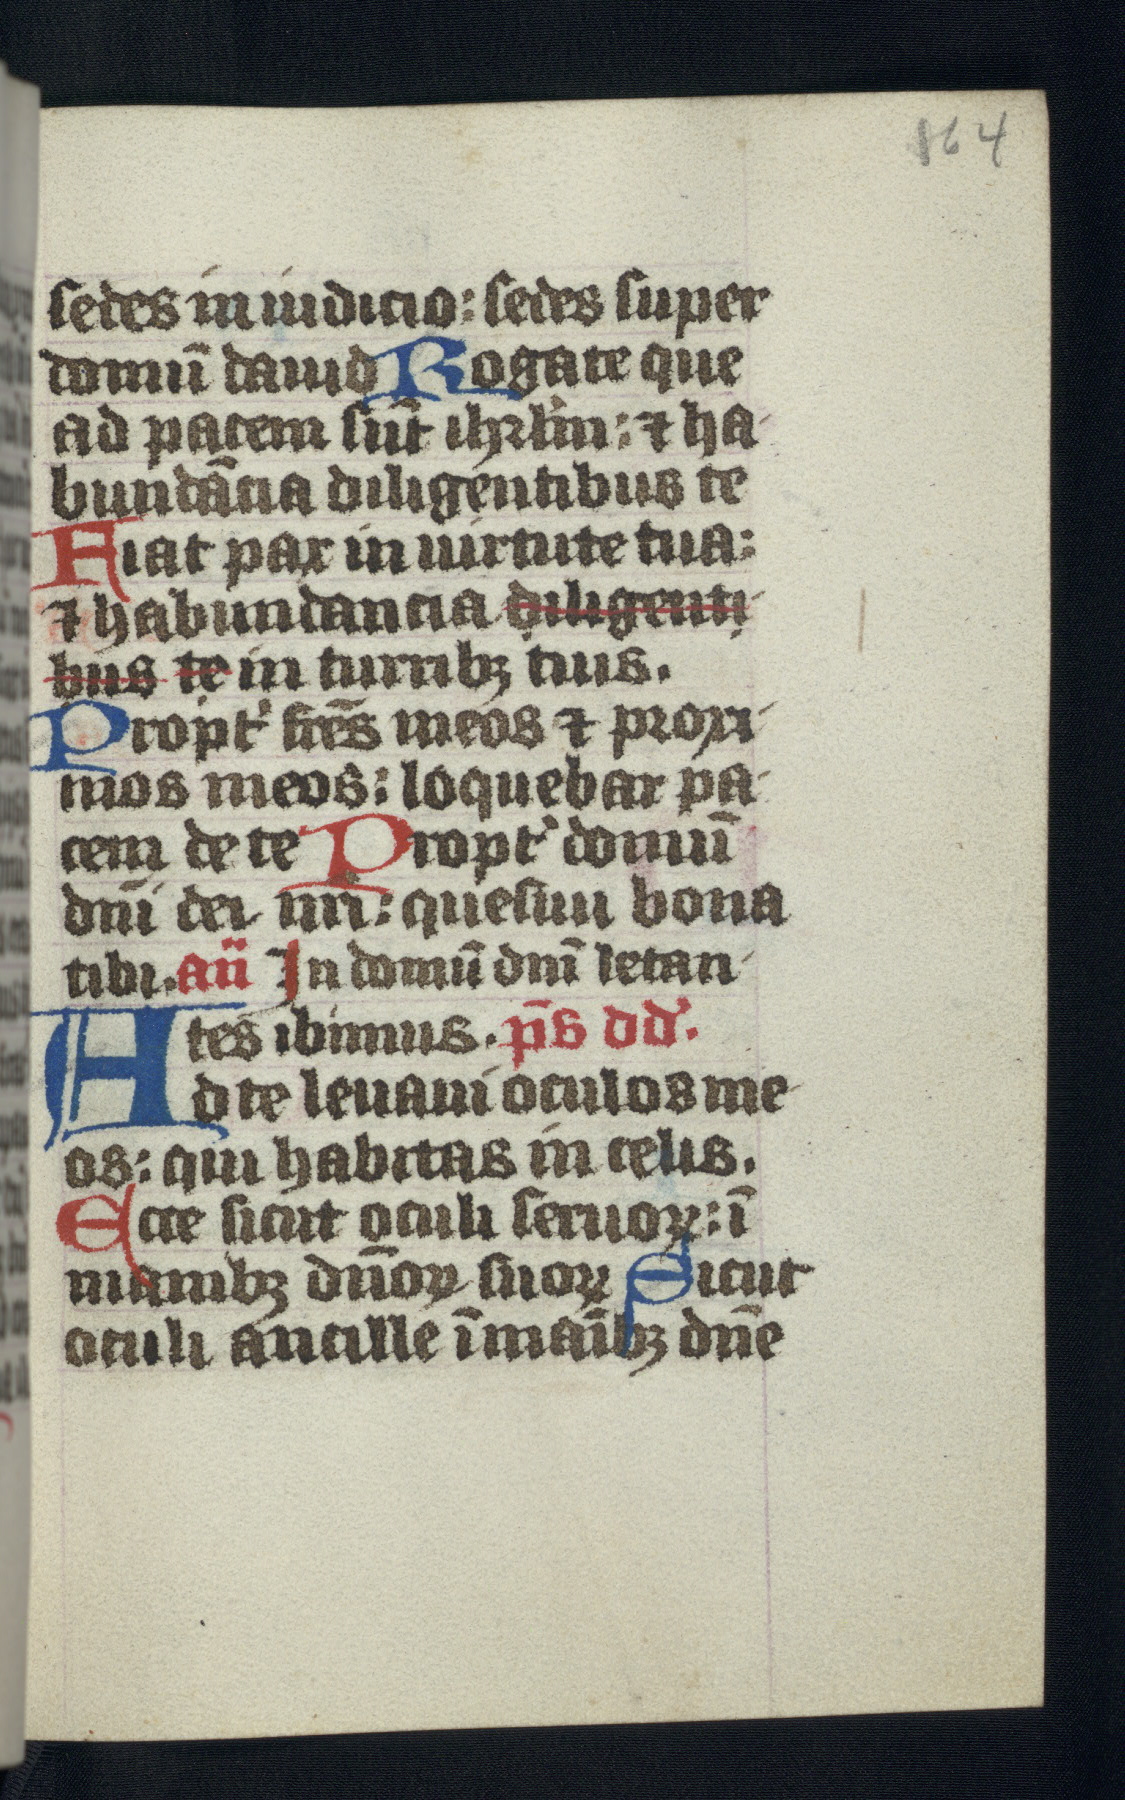 164
sedes in iudicio: sedes super
domū dauid Rogate que
ad pacem sūt ihrlm̄: ⁊ ha-
bundācia diligentibus te
Fiat pax in uirtute tua:
⁊ habundancia diligenti
bus te in turribꝫ tuis.
Propt' fr̄es meos ⁊ proxi-
mos meos: loquebar pa-
cem de te Propt' domū
dn̄i dei nr̄i: quesiui bona
tibi. an̄ In domū dnī letan-
tes ibimus. ps̄ dd'.
Ad te leuaui oculos me-
os: qui habitas in celis.
Ecce sicut oculi seruoꝝ: ī
manibꝫ dn̄oꝝ suoꝝ Sicut
oculi ancille ī maībꝫ dn̄e